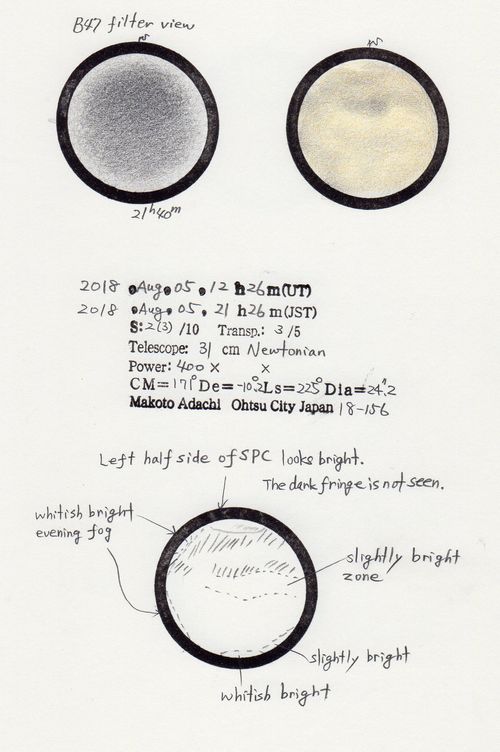 B47 filter view
21h40m
2018 Aug. 05. 12 h26m(UT)
2018 Aug. 05. 21 h26m(JST)
S: 2(3) /10 Transp.: 3/5
Telescope: 31 cm Newtonian
Power: 400 × ×
CM=171° De=-10.°2 Ls=225° Dia=24."2
Makoto Adachi Ohtsu City Japan 18-156
Left half side of SPC looks bright.
The dark fringe is not seen.
whitish bright
evening fog
slightly bright
zone
slightly bright
whitish bright